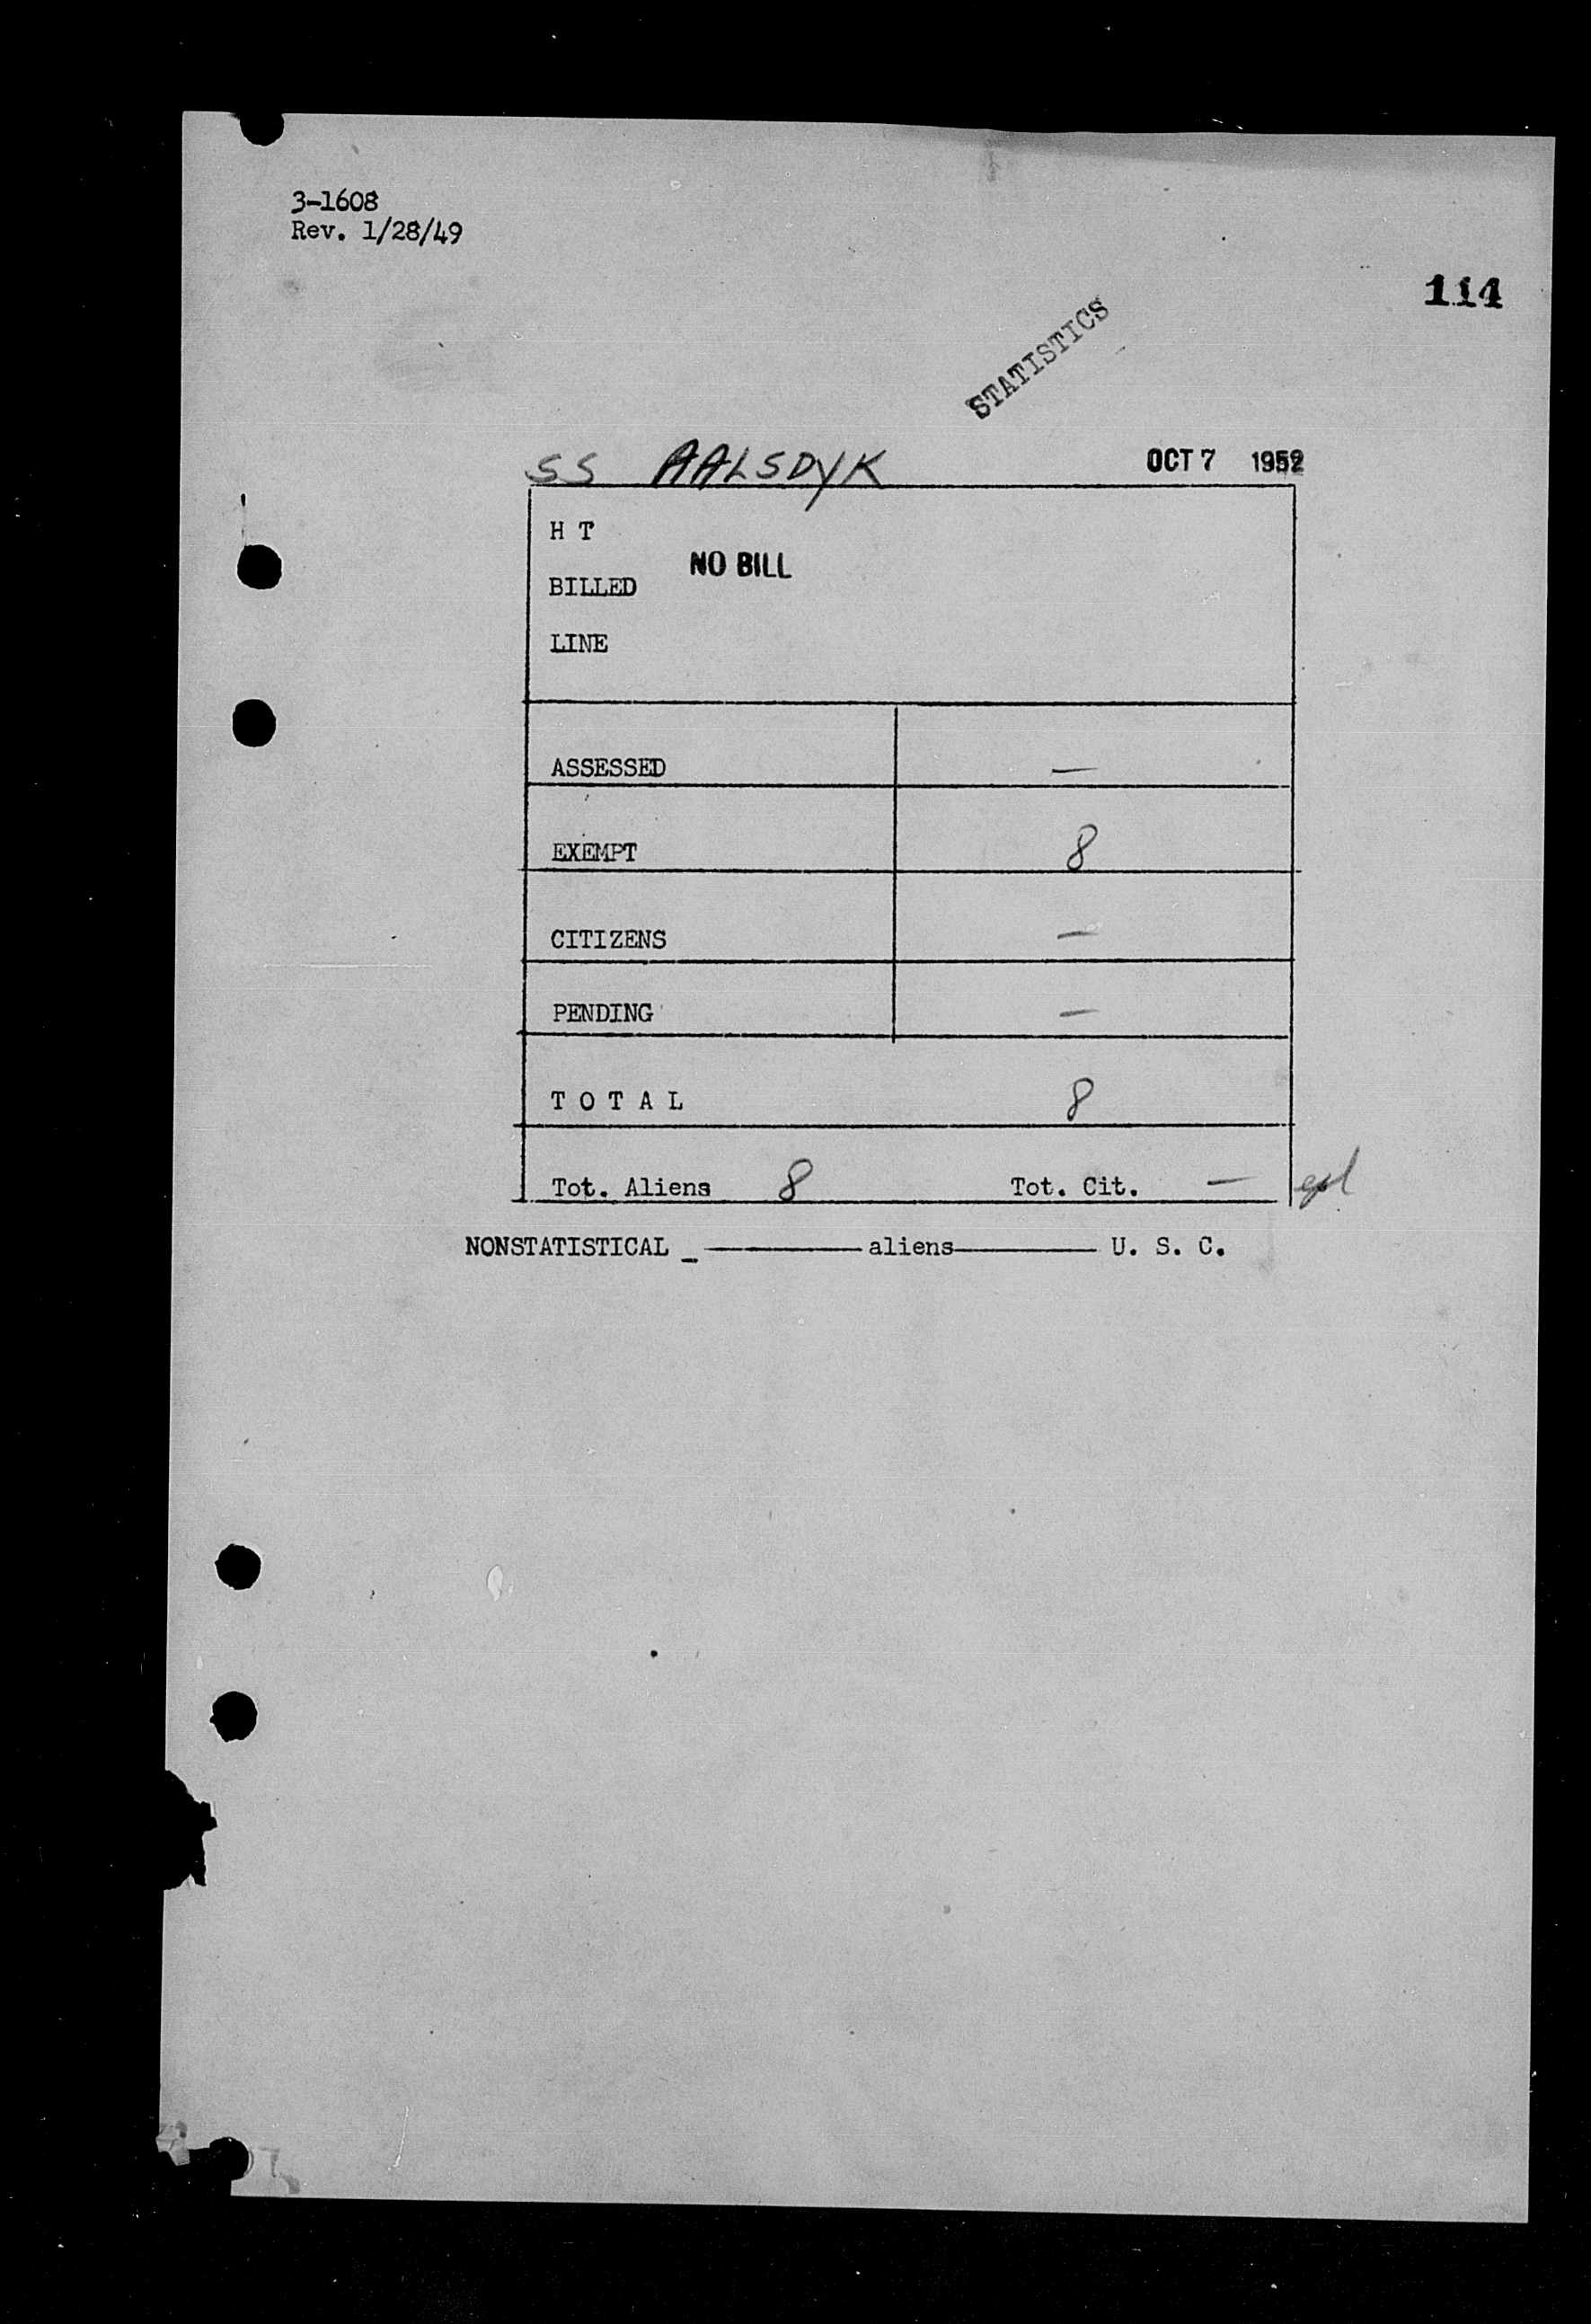 3-1608
Rev. 1/28/49
114
STATISTICS
SS AALSDYK OCT 7 1952
H T
NO BILL
BILLED
LINE
ASSESSED —
EXEMPT 8
CITIZENS —
PENDING —
T O T A L 8
Tot. Aliens 8 Tot. Cit. —
NONSTATISTICAL _ ———— aliens ———— U. S. C.